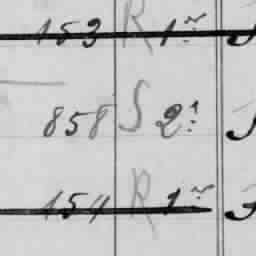 153 R 1r
858 S 2
154 R 1r